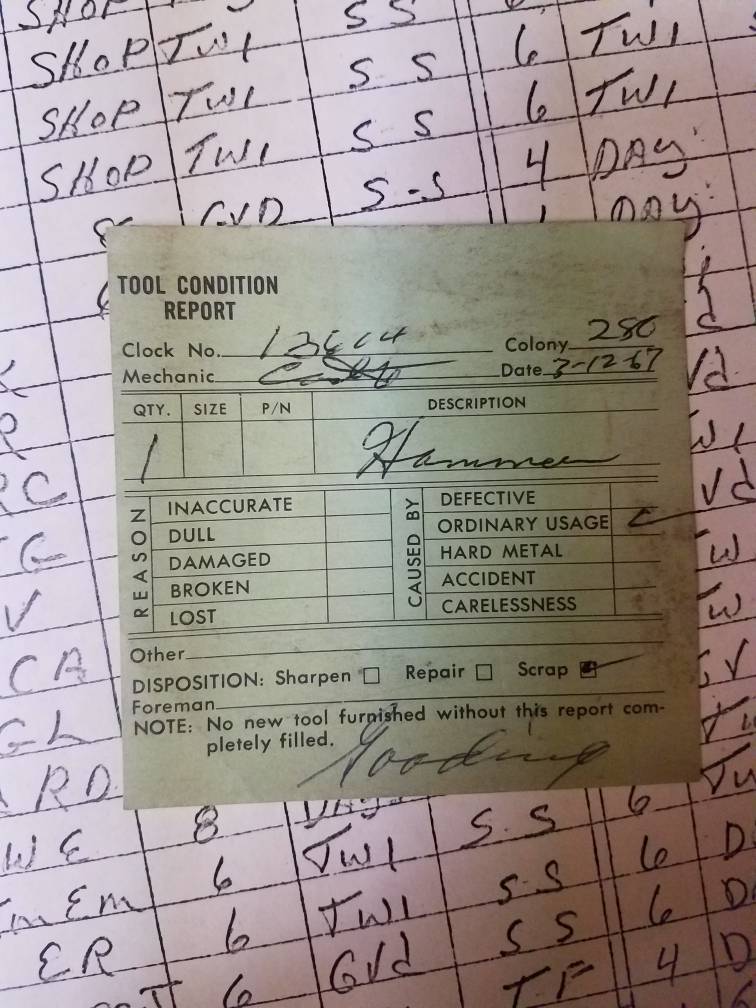 SHOP
SHOP TWI S S 6 TWI
SHOP TWI S S 6 TWI
SHOP TWI S S 4 DAY
GVD S-S DAY
TOOL CONDITION
REPORT
Clock No. 13614 Colony 280
Mechanic Date 3-12-67
QTY. SIZE P/N DESCRIPTION
1 Hammer
REASON
INACCURATE
DULL
DAMAGED
BROKEN
LOST
CAUSED BY
DEFECTIVE
ORDINARY USAGE
HARD METAL
ACCIDENT
CARELESSNESS
Other
DISPOSITION: Sharpen Repair Scrap
Foreman
NOTE: No new tool furnished without this report com-
pletely filled.
Gooding
RC Vd
G TW
V TW
CA GV
GL TW
ARD 6 TW
WE 8 DAY S.S
6 TWI S-S 6 D
EM 6 TWI S S 6 D
ER 6 GVd TF 4 D